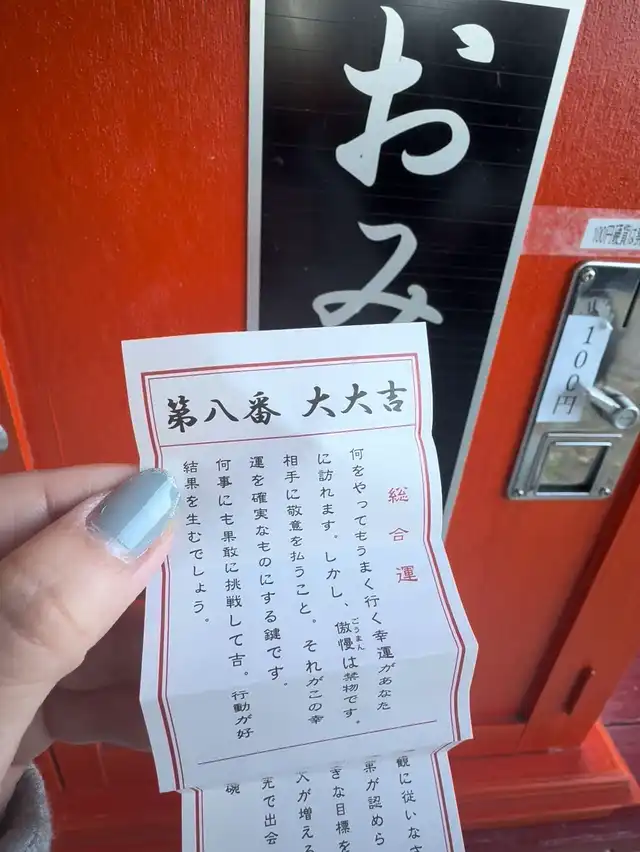 おみ
100円硬貨は
100円
第八番 大大吉
総合運
何をやってもうまく行く幸運があなた
に訪れます。しかし、傲慢は禁物です。
ごうまん
相手に敬意を払うこと。それがこの幸
運を確実なものにする鍵です。
何事にも果敢に挑戦して吉。行動が好
結果を生むでしょう。
観に従いなさ
果が認めら
きな目標を
人が増える
先で出会